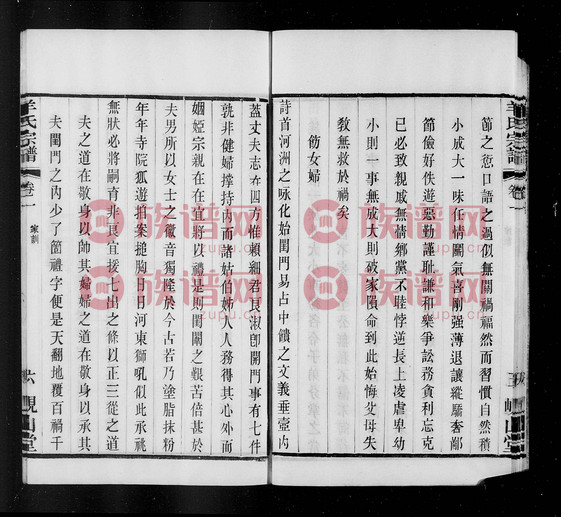 節之愆口語之過似無關禍福然而習慣自然積
小成大一味任情鬬氣喜剛强薄退讓縱驕奢鄙
節儉好佚遊惡勤謹耻謙和樂爭訟務貪利忘克
己必致親戚無情鄉黨不睦悖逆長上凌虐卑幼
小則一事無成大則破家隕命到此始悔父母失
教無救於禍矣
飭女婦
詩首河洲之咏化始閨門易占中饋之文義垂壼内
蓋丈夫志在四方惟賴細君良淑卽開門事有七件
孰非健婦撐持内而諸姑伯姊人人務得其心外而
姻婭宗親在在宜將以禮是則閨閫之艱苦倍甚於
夫男所以女士之徽音獨隆於今古若乃塗脂抹粉
年年寺院狐遊拍案搥胸日日河東獅吼似此承祧
無狀必將嗣育非良宜援七出之條以正三從之道
夫之道在敬身以帥其婦婦之道在敬身以承其
夫閨門之内少了箇禮字便是天翻地覆百禍千
羊氏宗譜
卷一
家訓
峴山堂
羊氏宗譜
卷一
峴山堂
族谱网
zupu.cn